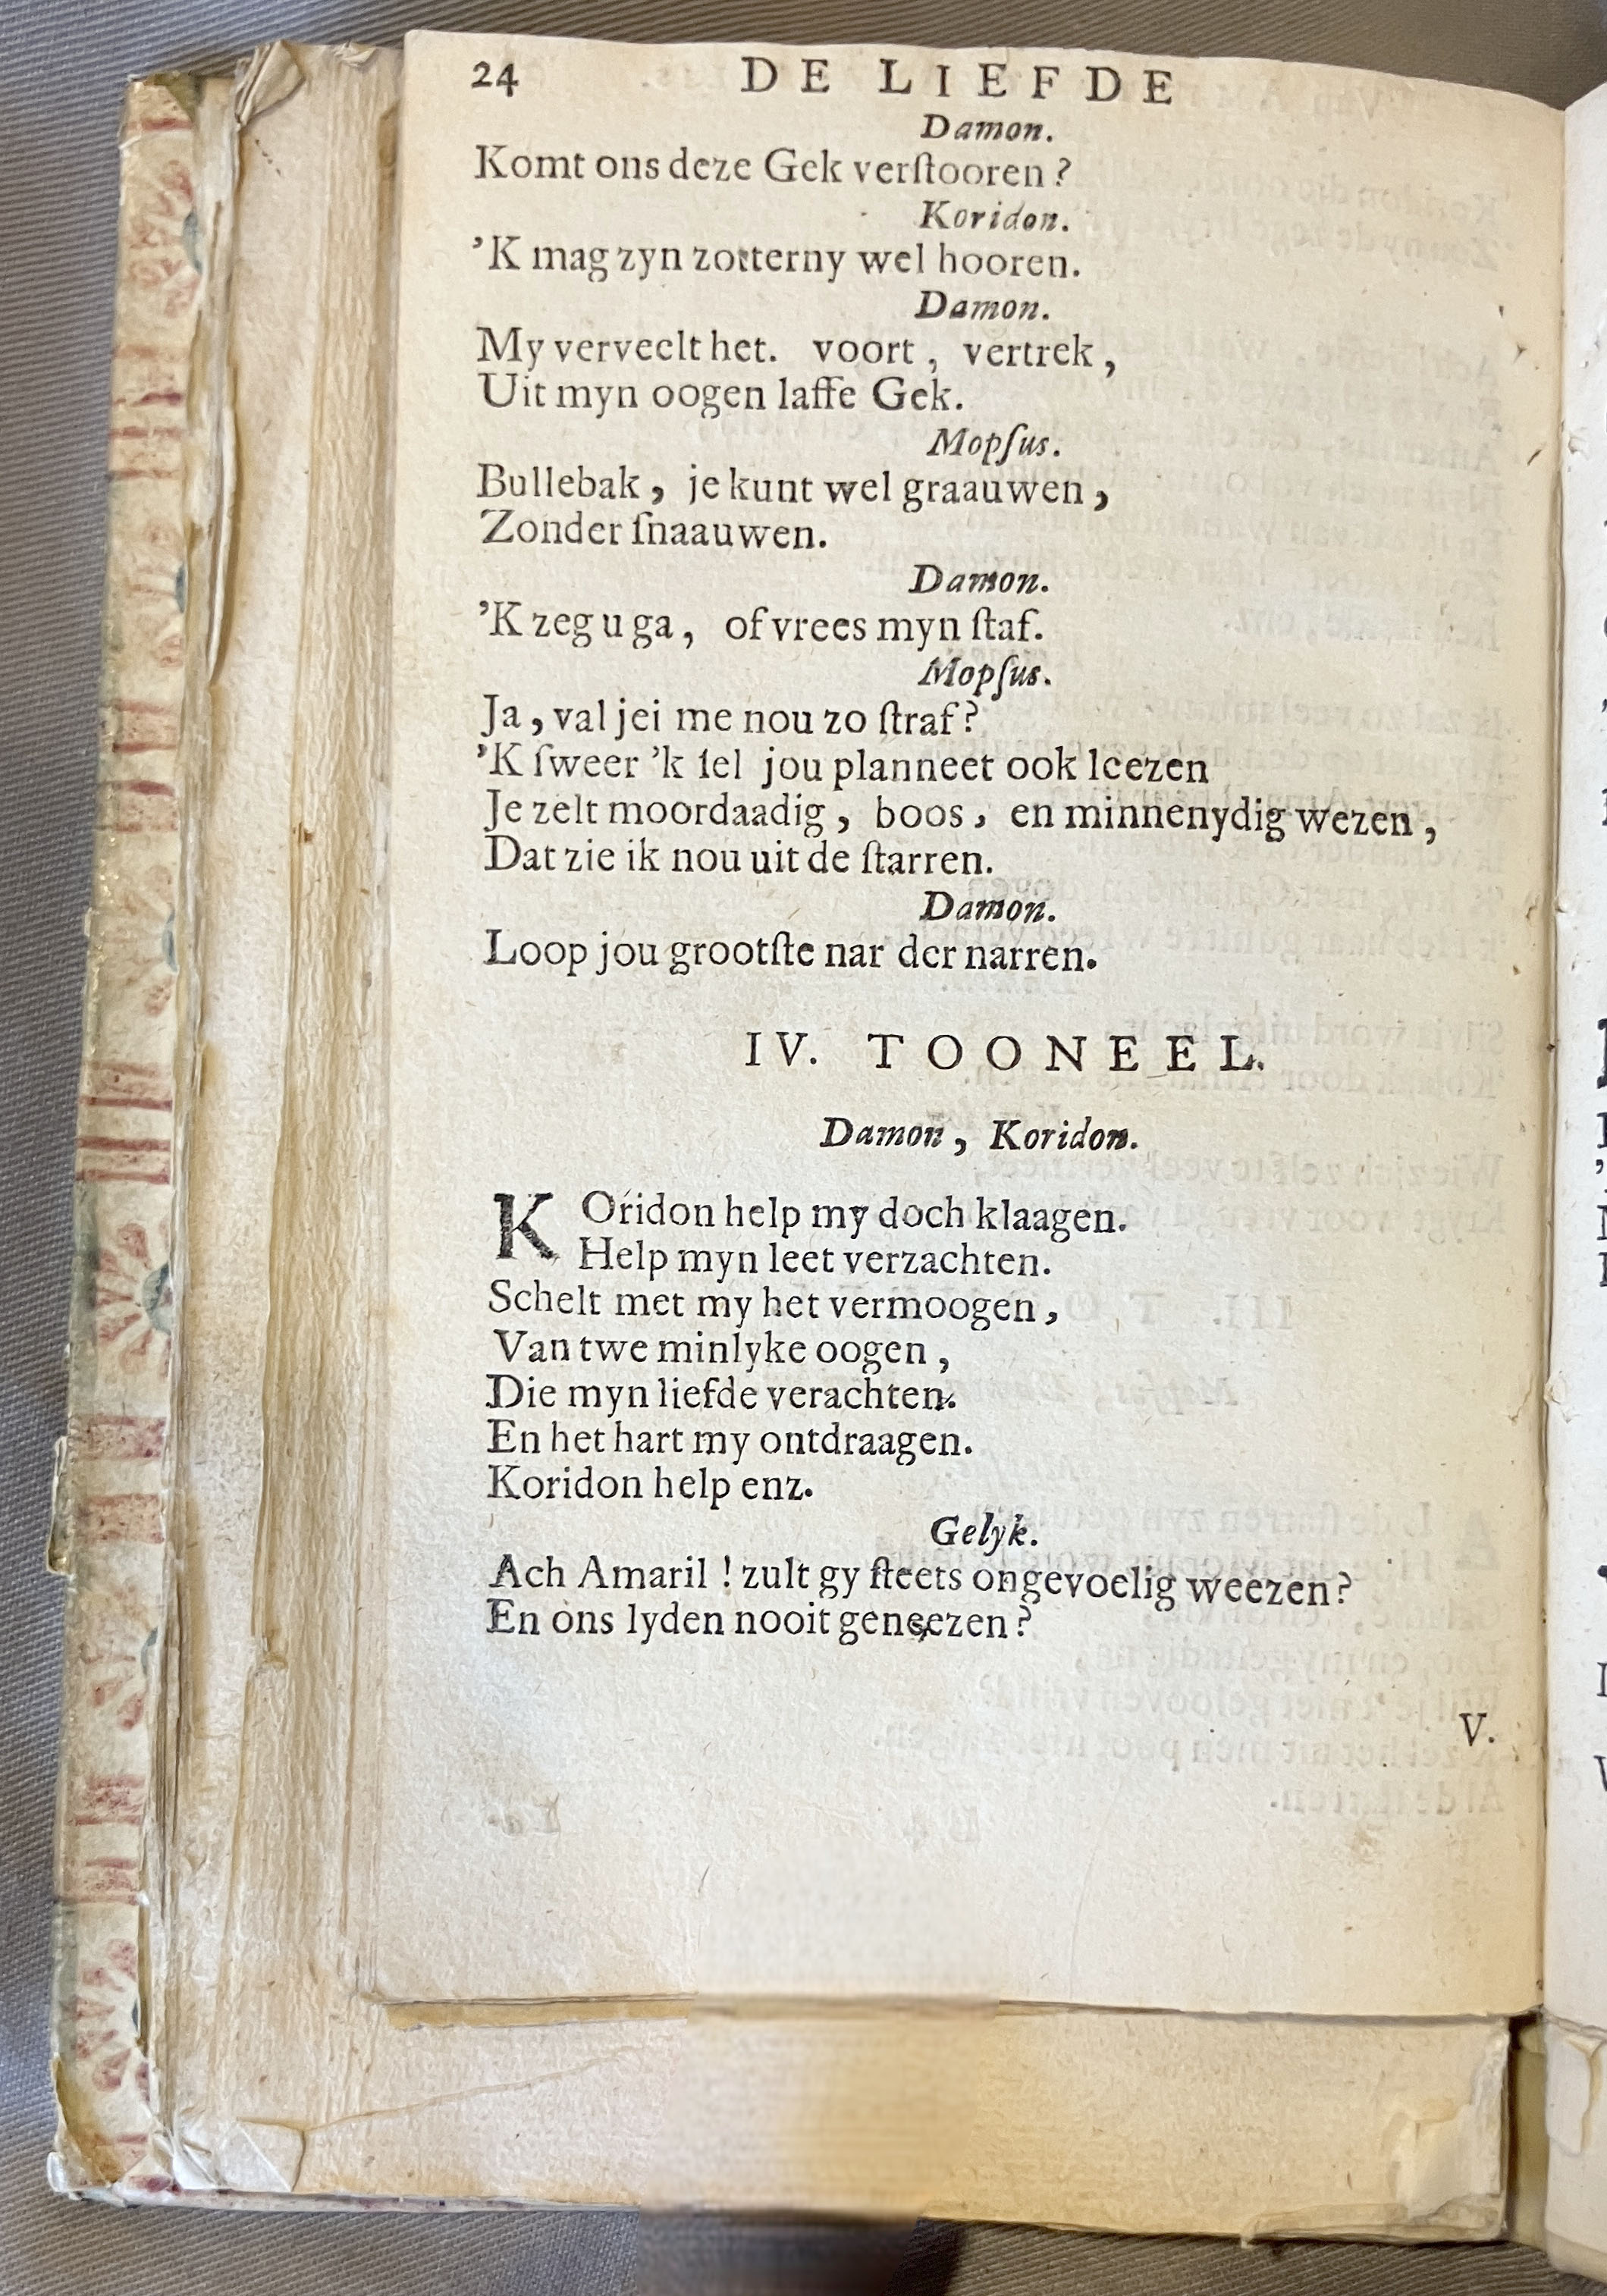 24 DE LIEFDE
Damon.
Komt ons deze Gek verſtooren?
Koridon.
'K mag zyn zotterny wel hooren.
Damon.
My verveelt het. voort, vertrek,
Uit myn oogen laffe Gek.
Mopſus.
Bullebak, je kunt wel graauwen,
Zonder ſnaauwen.
Damon.
'K zeg u ga, of vrees myn ſtaf.
Mopſus.
Ja, val jei me nou zo ſtraf?
'K ſweer 'k ſel jou planneet ook leezen
Je zelt moordaadig, boos, en minnenydig wezen,
Dat zie ik nou uit de ſtarren.
Damon.
Loop jou grootſte nar der narren.
IV. TOONEEL.
Damon, Koridon.
KOridon help my doch klaagen.
Help myn leet verzachten.
Schelt met my het vermoogen,
Van twe minlyke oogen,
Die myn liefde verachten.
En het hart my ontdraagen.
Koridon help enz.
Gelyk.
Ach Amaril! zult gy ſteets ongevoelig weezen?
En ons lyden nooit geneezen?
V.